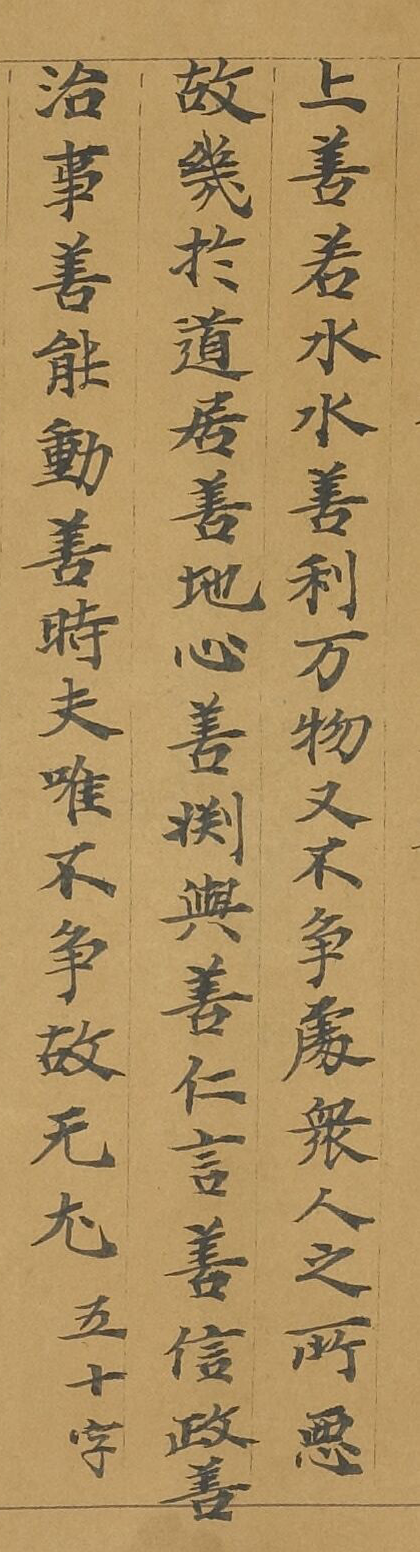 上善若水水善利万物又不争處衆人之所惡
故幾扵道居善地心善渕與善仁言善信政善
治事善能動善時夫唯不争故无尤 五十字